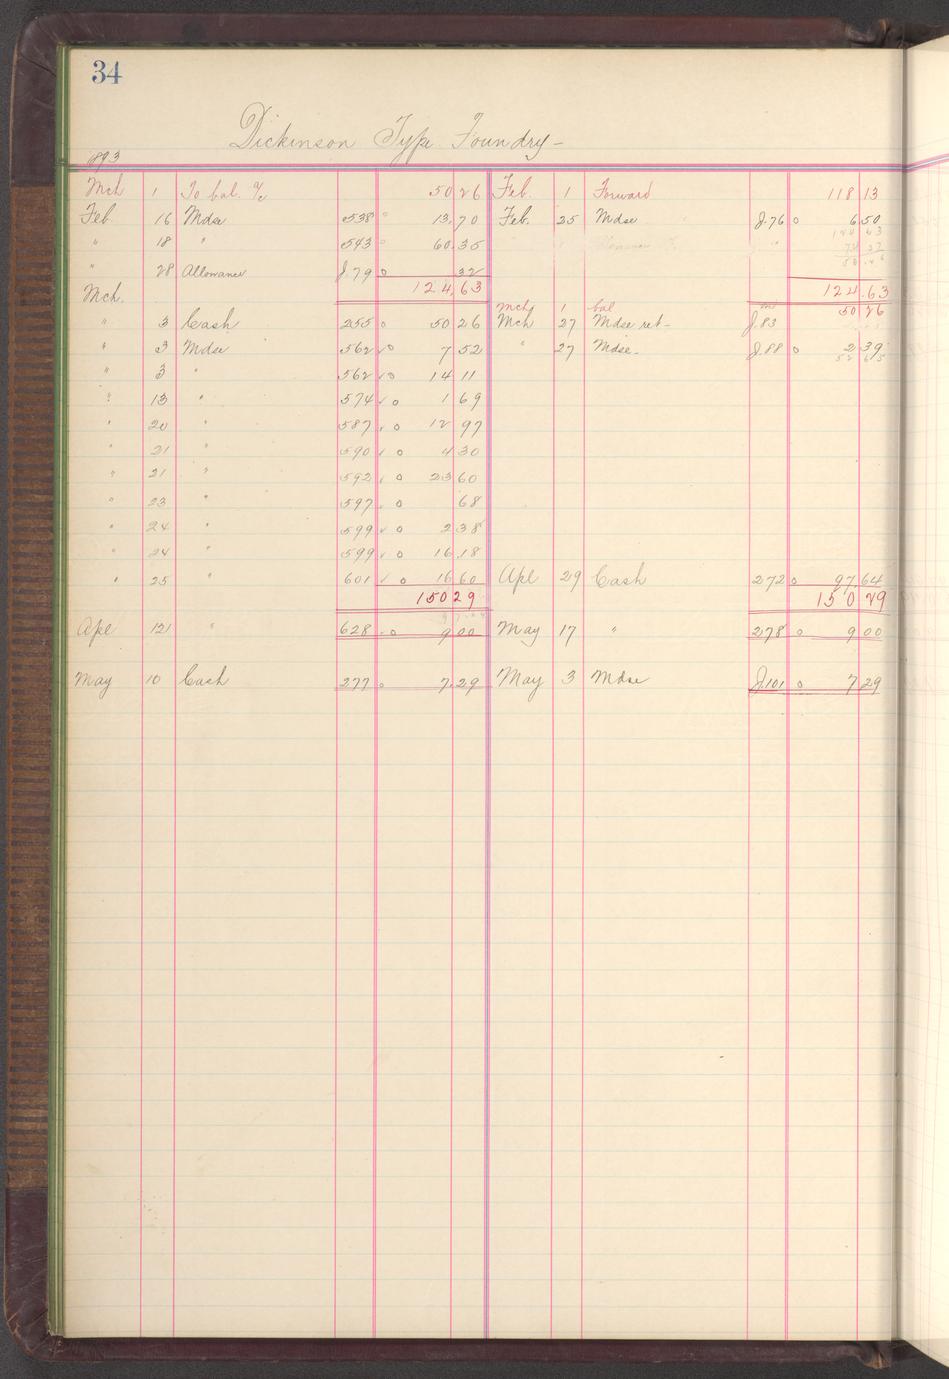 34
Dickinson Type Foundry-
1893
Mch 1 To bal. a/c 50 26 Feb. 1 Forward 118 13
Feb. 16 Mdse 538 o 13,70 Feb. 25 Mdse J.76 o 6 50
" 18 " 543 o 60.35
" 28 Allowance J.79 o 32
124,63 124.63
Mch. Mch 1 bal 50 26
" 3 Cash 255 o 50 26 Mch 27 Mdse ret- J.83
" 3 Mdse 562 ✓ o 7 52 " 27 Mdse- J.88 o 2 39
52 65
" 3 " 562 ✓ o 14 11
" 13 " 574 ✓ o 1 69
" 20 " 587 ✓ o 12 97
" 21 " 590 ✓ o 4 30
" 21 " 592 ✓ o 23 60
" 23 " 597 ✓ o 68
" 24 " 599 ✓ o 2 38
" 24 " 599 ✓ o 16.18
" 25 " 601 ✓ o 16 60 Apl 29 Cash 272 o 97.64
150 29 150 29
Apl 121 " 628 ✓ o 9 00 May 17 " 278 o 9 00
May 10 Cash 277 o 7.29 May 3 Mdse J.101 o 7 29